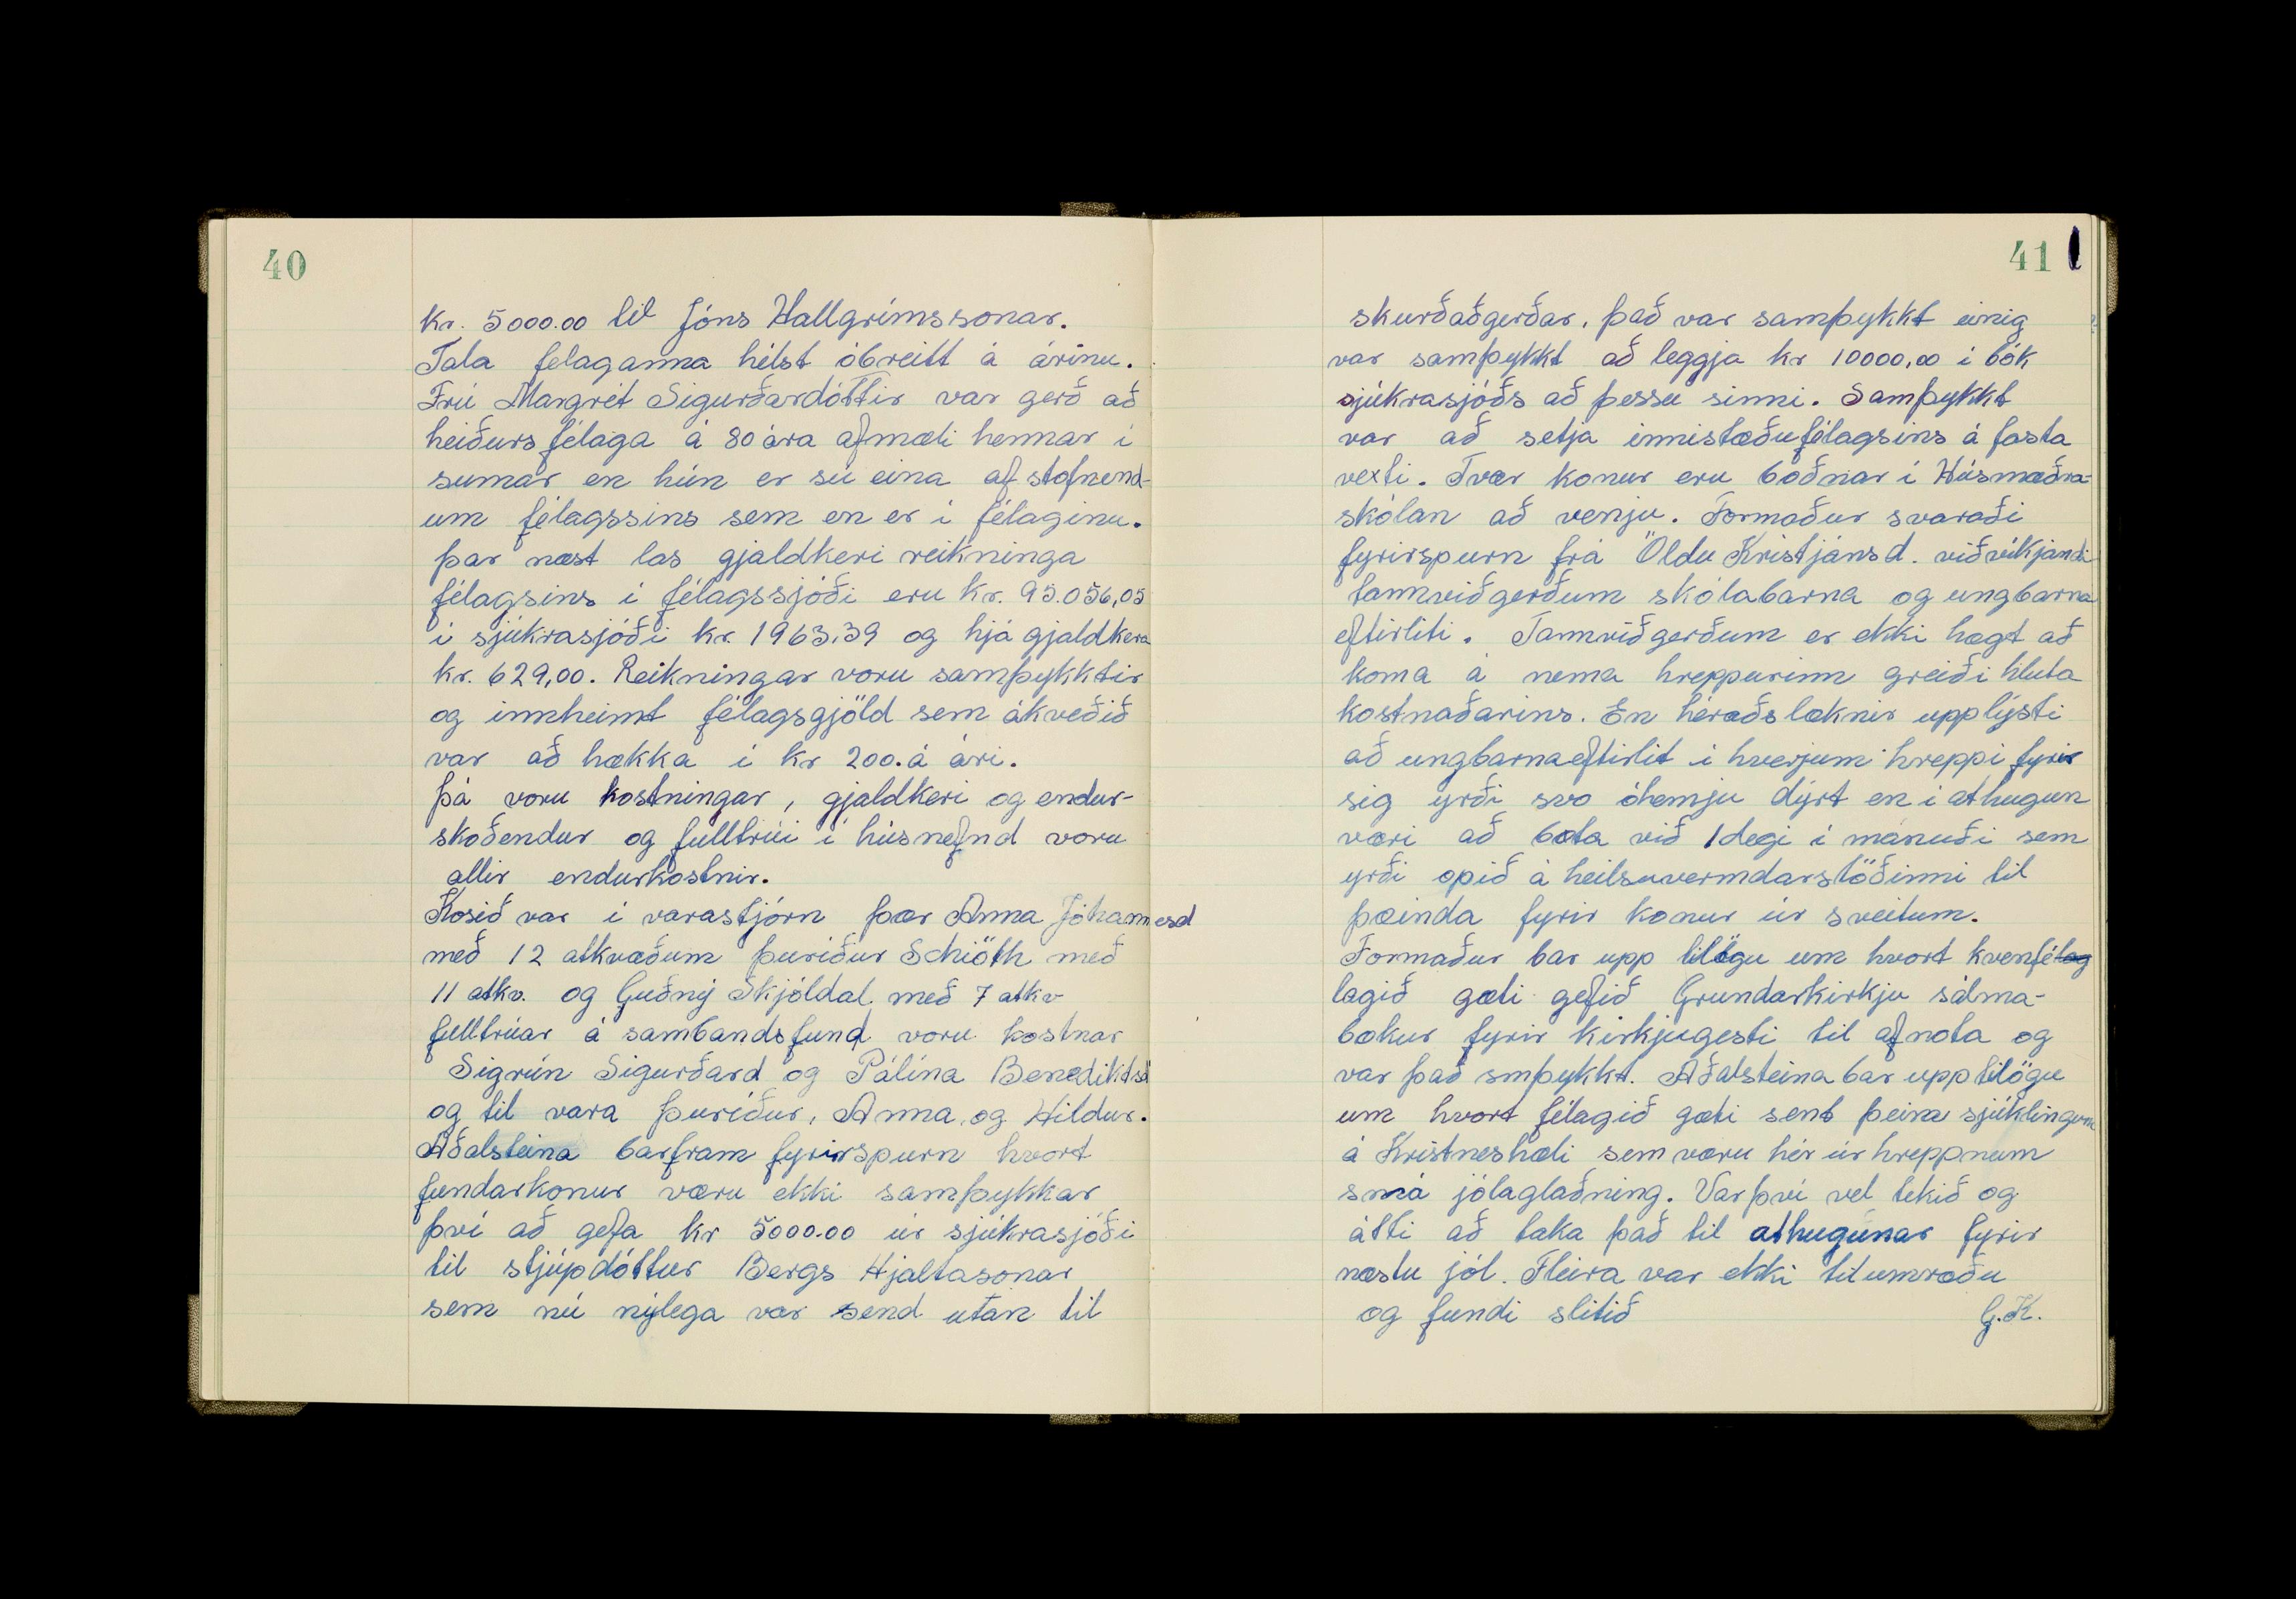 40
kr. 5000.00 til Jóns Hallgrímssonar.
Tala félaganna hélst óbreitt á árinu.
Frú Margrét Sigurðardóttir var gerð að
heiðursfélaga á 80 ára afmæli hennar í
sumar en hún er sú eina af stofnend-
um félagssins sem en er í félaginu.
þar næst las gjaldkeri reikninga
félagsins í félagssjóði eru kr. 95.056,05
í sjúkrasjóði kr. 1963.39 og hjá gjaldkera
kr. 629,00. Reikningar voru samþykktir
og innheimt félagsgjöld sem ákveðið
var að hækka í kr 200. á ári.
þá voru kostningar, gjaldkeri og endur-
skoðendur og fulltrúi í húsnefnd voru
allir endurkostnir.
Kosið var í varastjórn þær Anna Jóhannesd
með 12 atkvæðum þuríður Schiöth með
11 atkv. og Guðný Skjóldal með 7 atkv
fulltrúar á sambandsfund voru kostnar
Sigrún Sigurðard og Pálína Benediktsd
og til vara þuríður, Anna og Hildur.
Aðalsteina bar fram fyrirspurn hvort
fundarkonur væru ekki samþykkar
því að gefa kr 5000.00 úr sjúkrasjóði
til stjúpdóttur Bergs Hjaltasonar
sem nú nýlega var send utan til
41
skurðaðgerðar, það var samþykkt einig
var samþykkt að leggja kr 10000,00 í bók
sjúkrasjóðs að þessu sinni. Samþykkt
var að setja innistæðu félagsins á fasta
vexti. Tvær konur eru boðnar í Húsmæðra-
skólan að venju. Formaður svaraði
fyrirspurn frá Öldu Kristjánsd. viðvíkjandi
tannviðgerðum skólabarna og ungbarna
eftirliti. Tannviðgerðum er ekki hægt að
koma á nema hreppurinn greiði hluta
kostnaðarins. En héraðslæknir upplýsti
að ungbarnaeftirlit í hverjum hreppi fyrir
sig yrði svo óhemju dýrt en í athugun
væri að bæta við 1 degi í mánuði sem
yrði opið á heilsuverndarstöðinni til
þæinda fyrir konur úr sveitum.
Formaður bar upp tilögu um hvort kvenfélag
lagið gæti gefið Grundarkirkju sálma-
bækur fyrir kirkjugesti til afnota og
var það smþykkt. Aðalsteina bar upp tilögu
um hvort félagið gæti sent þeira sjúklingum
á Kristneshæli sem væru hér úr hreppnum
smá jólaglaðning. Var því vel tekið og
átti að taka það til athugunar fyrir
næstu jól. Fleira var ekki til umræðu
og fundi slitið G.K.